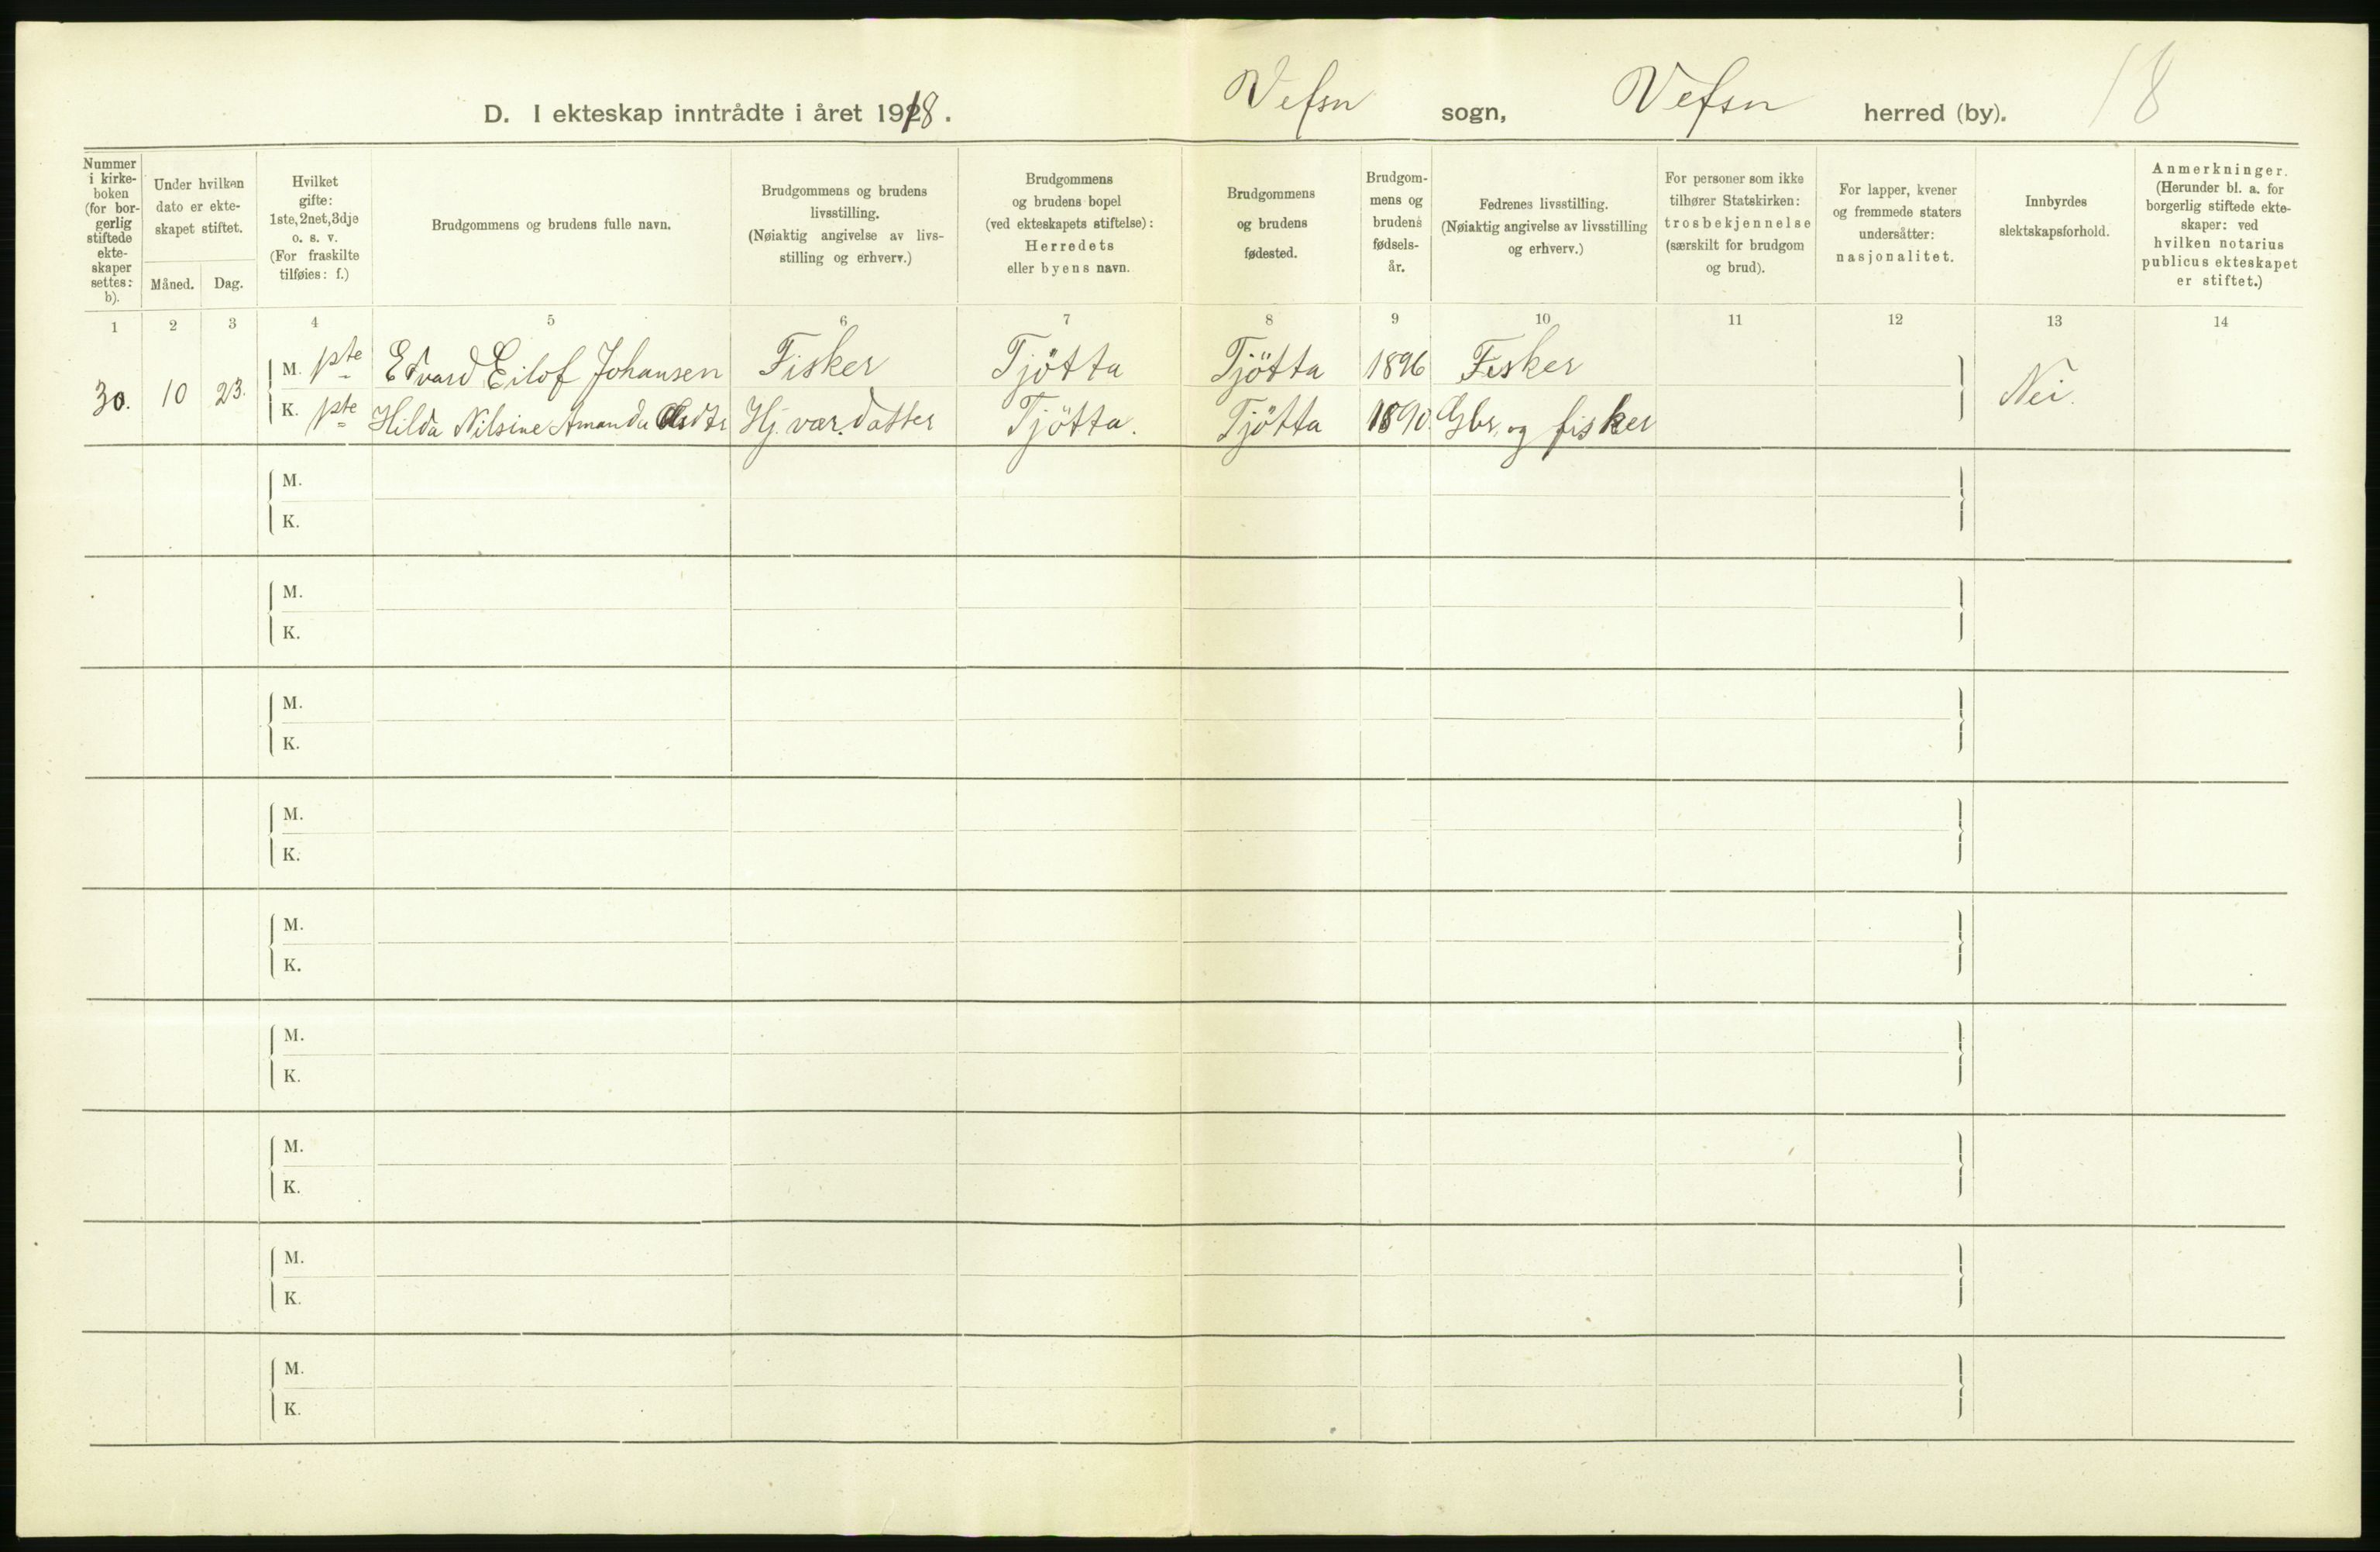 D. I ekteskap inntrådte i året 1918. Vefsn sogn, Vefsn herred (by). 18
Nummer i kirke- boken (for bor- gerlig stiftede ekte- skaper settes: b).
Under hvilken dato er ekte- skapet stiftet.
Måned. Dag.
Hvilket gifte: 1ste, 2net, 3dje o. s. v. (For fraskilte tilføies: f.)
Brudgommens og brudens fulle navn.
Brudgommens og brudens livsstilling. (Nøiaktig angivelse av livs- stilling og erhverv.)
Brudgommens og brudens bopel (ved ekteskapets stiftelse): Herredets eller byens navn.
Brudgommens og brudens fødested.
Brudgom- mens og brudens fødsels- år.
Fedrenes livsstilling. (Nøiaktig angivelse av livsstilling og erhverv.)
For personer som ikke tilhører Statskirken: trosbekjennelse (særskilt for brudgom og brud).
For lapper, kvener og fremmede staters undersåtter: nasjonalitet.
Innbyrdes slektskapsforhold.
Anmerkninger. (Herunder bl. a. for borgerlig stiftede ekte- skaper: ved hvilken notarius publicus ekteskapet er stiftet.)
1 2 3 4 5 6 7 8 9 10 11 12 13 14
30. 10 23.
M. 1ste Edvard Eilof Johansen Fisker Tjötta Tjötta 1896 Fisker
Nei.
K. 1ste Hilda Nilsine Amanda Hj. vær. datter Tjötta. Tjötta 1890. Gbr. og fisker
M.
K.
M.
K.
M.
K.
M.
K.
M.
K.
M.
K.
M.
K.
M.
K.
M.
K.